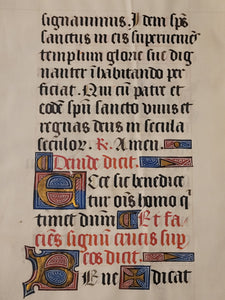 signauimus. Idem sp̄s
sanctus in eis superueniēs
templum glorie sue dig
nanter īhabitando per
ficiat. Qui cū patre et
eodē spū sancto viuis et
regnas deus in secula
seculor. R. Amen.
Deinde dicit.
Ecce sic benedice
tur oīs homo q̄
timet dnm̄ Et fa
ciēs signū crucis sup
eos dicit.
Bene dicat